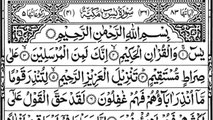 سُورَةُ يٰسٓ مَكِّيَّةٌ
بِسْمِ اللّٰهِ الرَّحْمٰنِ الرَّحِيْمِ
يٰسٓ وَالْقُرْاٰنِ الْحَكِيْمِ اِنَّكَ لَمِنَ الْمُرْسَلِيْنَ عَلٰى
صِرَاطٍ مُّسْتَقِيْمٍ تَنْزِيْلَ الْعَزِيْزِ الرَّحِيْمِ لِتُنْذِرَ قَوْمًا
مَّاۤ اُنْذِرَ اٰبَآؤُهُمْ فَهُمْ غٰفِلُوْنَ لَقَدْ حَقَّ الْقَوْلُ عَلٰۤى